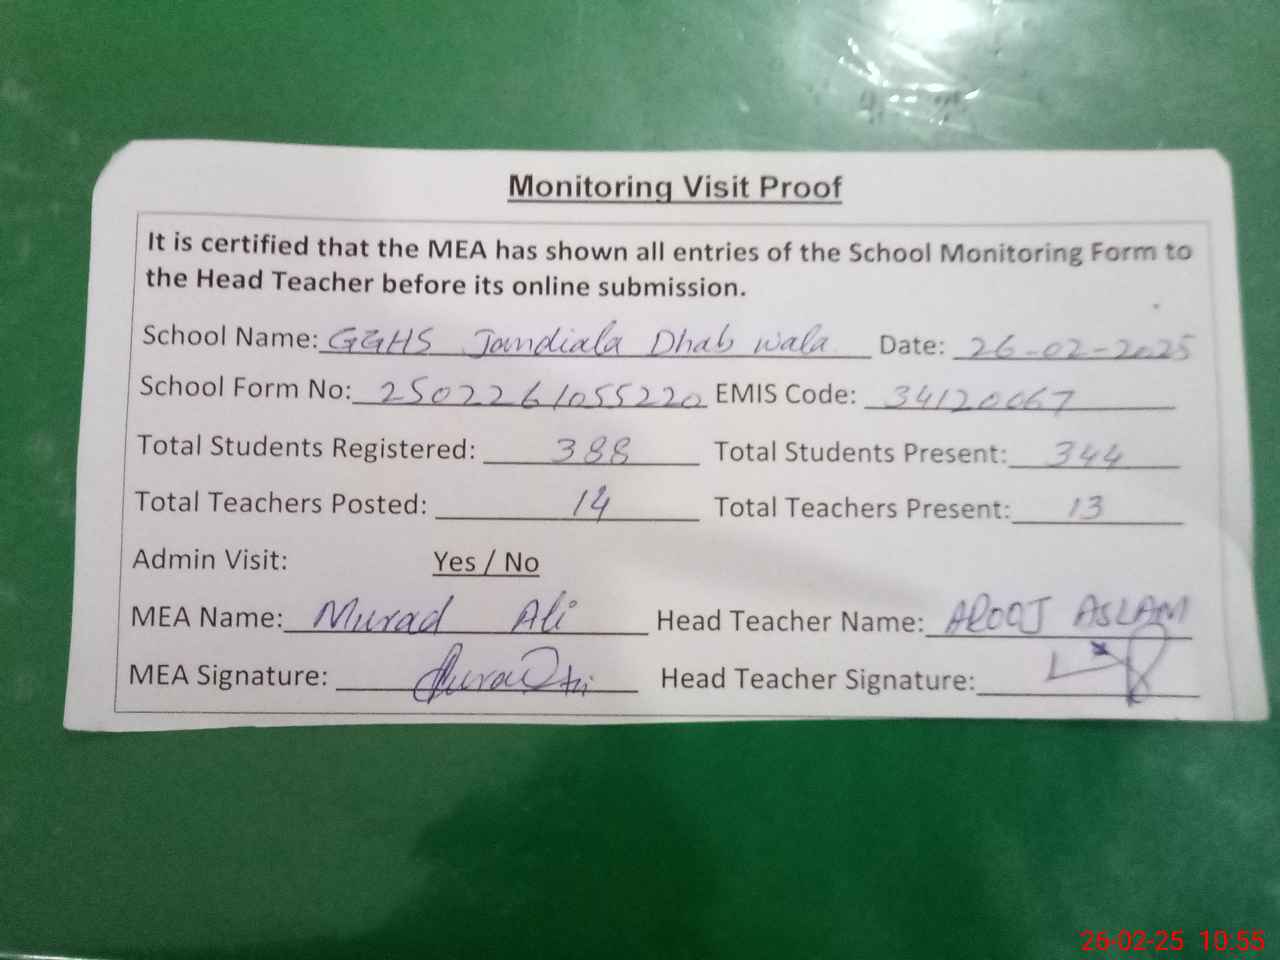 Monitoring Visit Proof
It is certified that the MEA has shown all entries of the School Monitoring Form to
the Head Teacher before its online submission.
School Name: GGHS Jandiala Dhab wala Date: 26-02-2025
School Form No: 2502261055220 EMIS Code: 34120067
Total Students Registered: 388 Total Students Present: 344
Total Teachers Posted: 14 Total Teachers Present: 13
Admin Visit: Yes / No
MEA Name: Murad Ali Head Teacher Name: AROOJ ASLAM
MEA Signature: Head Teacher Signature:
26-02-25 10:55